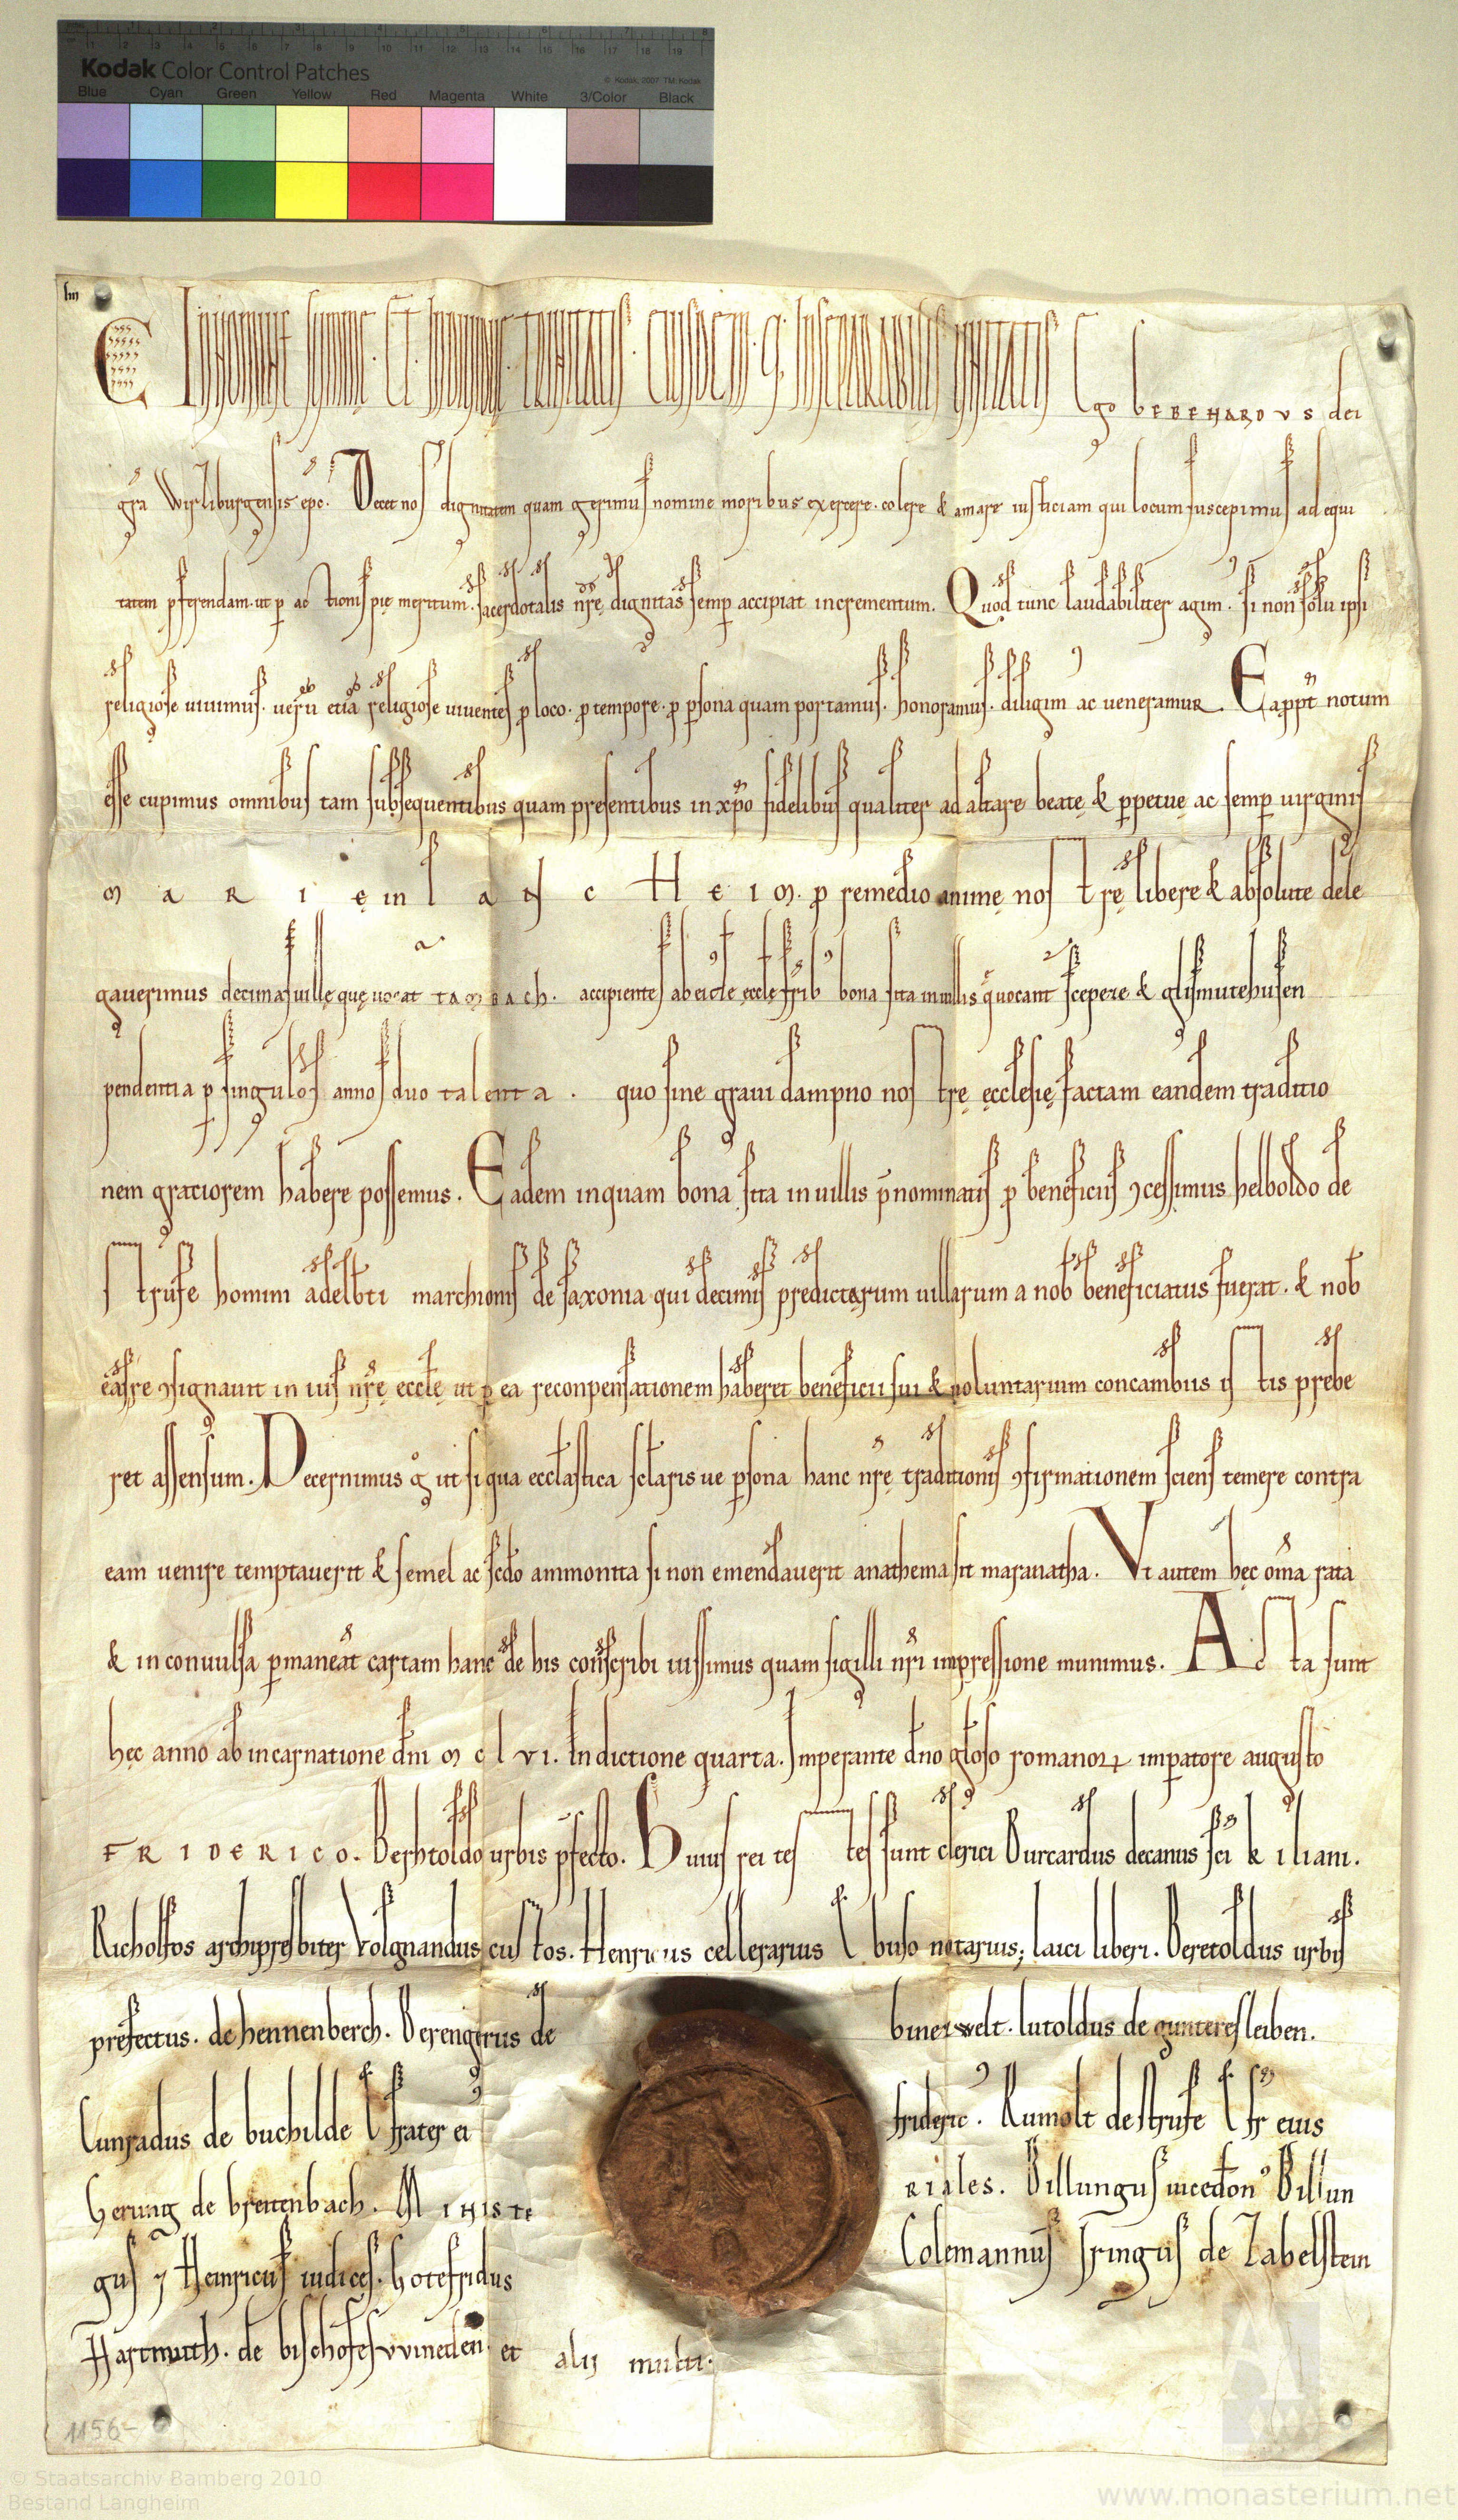 Kodak Color Control Patches
© Kodak, 2007 TM: Kodak
Blue Cyan Green Yellow Red Magenta White 3/Color Black
C IN NOMINE SUMME ET INDIVIDUE TRINITATIS EIUSDEMq; INSEPARABILIS UNITATIS Ego bEBEHARDVS dei
gr̄a Wirziburgensis ep̄c. Decet nos dignitatem quam gerimus nomine moribus exercere. colere & amare iusticiam qui locum suscepimus ad equi
tatem p̄ferendam. ut p actionis pię meritum. sacerdotalis nr̄ę dignitas semp accipiat incrementum. Quod tunc laudabiliter agim᾽. si non solū ipsi
religiose uiuimus. uerū etiā religiose uiuentes p loco. p tempore. p psona quam portamus. honoramus. diligim᾽ ac ueneramur. Eapp̄t notum
esse cupimus omnibus tam subsequentibus quam presentibus in xp̄o fidelibus qualiter ad altare beatę & ppetuę ac semp uirginis
MARIE ̨ in lANcHEIM. p remedio animę nostrę libere & absolute dele
gauerimus decimas uillę quę uocat᾽ TAMBACh. accipientes ab eicłe ęccłę fr̄ib᾽ bona sita in uillis q̄ uocant᾽ scepere & glismutehusen
pendentia p singulos annos duo talenta. quo sine graui dampno nostrę ęcclesię factam eandem traditio
nem graciorem habere possemus. Eadem inquam bona sita in uillis p̄nominatis p beneficiis ꝯcessimus helboldo de
strufe homini adelb̄ti marchionis de saxonia qui decimis predictarum uillarum a nob̄ beneficiatus fuerat. & nob̄
eas re ꝯsignauit in ius nr̄ę eccłę ut p ea reconpensationem haberet beneficii sui & uoluntarium concambiis istis prebe
ret assensum. Decernimus g̊ ut si qua eccłastica scłarisue psona hanc nr̄ę traditionis ꝯfirmationem sciens temere contra
eam uenire temptauerit & semel ac sc̄do ammonita si non emendauerit anathema sit maranatha. Vt autem hęc om̄a rata
& inconuulsa pmaneāt cartam hanc de his conscribi iussimus quam sigilli nr̄i impressione munimus. Acta sunt
hęc anno ab incarnatione dn̄i M c l vi. Indictione quarta. Imperante dn̄o gł̄oso romanoꝝ impatore augusto
FRIDERICO. Berhtoldo urbis p̄fecto. Huius rei testes sunt clerici Burcardus decanus sc̄i kiliani.
Richolfos archipresbiter Volgnandus custos. Henricus cellerarius & buso notarius; laici liberi. Beretoldus urbis
prefectus. de hennenberch. Berengerus de binerwelt. lutoldus de gunteresleiben.
Cunradus de buchilde & frater ei᾽ frideric᾽. Rumolt de strufe & fr̄ eius
Gerung de breitenbach. MINISTE RIALES. Billungus uicedon᾽ Billun
gus ⁊ Heinricus iudices. Gotefridus Colemannus Iringus de Zabelstein
Hartmuth. de bischofeswineden. et alij multi.
1156-
© Staatsarchiv Bamberg 2010
Bestand Langheim
www.monasterium.net